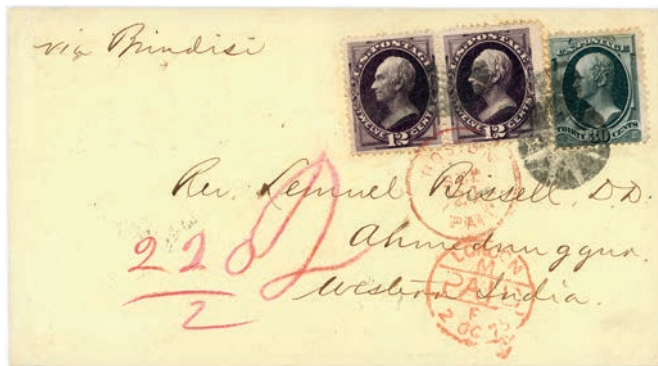 via Brindisi
U.S. POSTAGE
TWELVE 12 CENTS
U.S. POSTAGE
TWELVE 12 CENTS
U.S. POSTAGE
THIRTY 30 CENTS
BOSTON
PAID
Rev. Lemuel Bissell, D.D.
Ahmednuggur.
Western India.
220
2
2
LONDON
PAID
F
2 OC 75